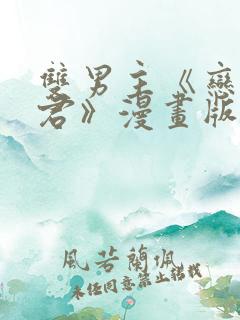 雙男主《戀
君》漫畫版
風若蘭珮
未經同意禁止錯栽